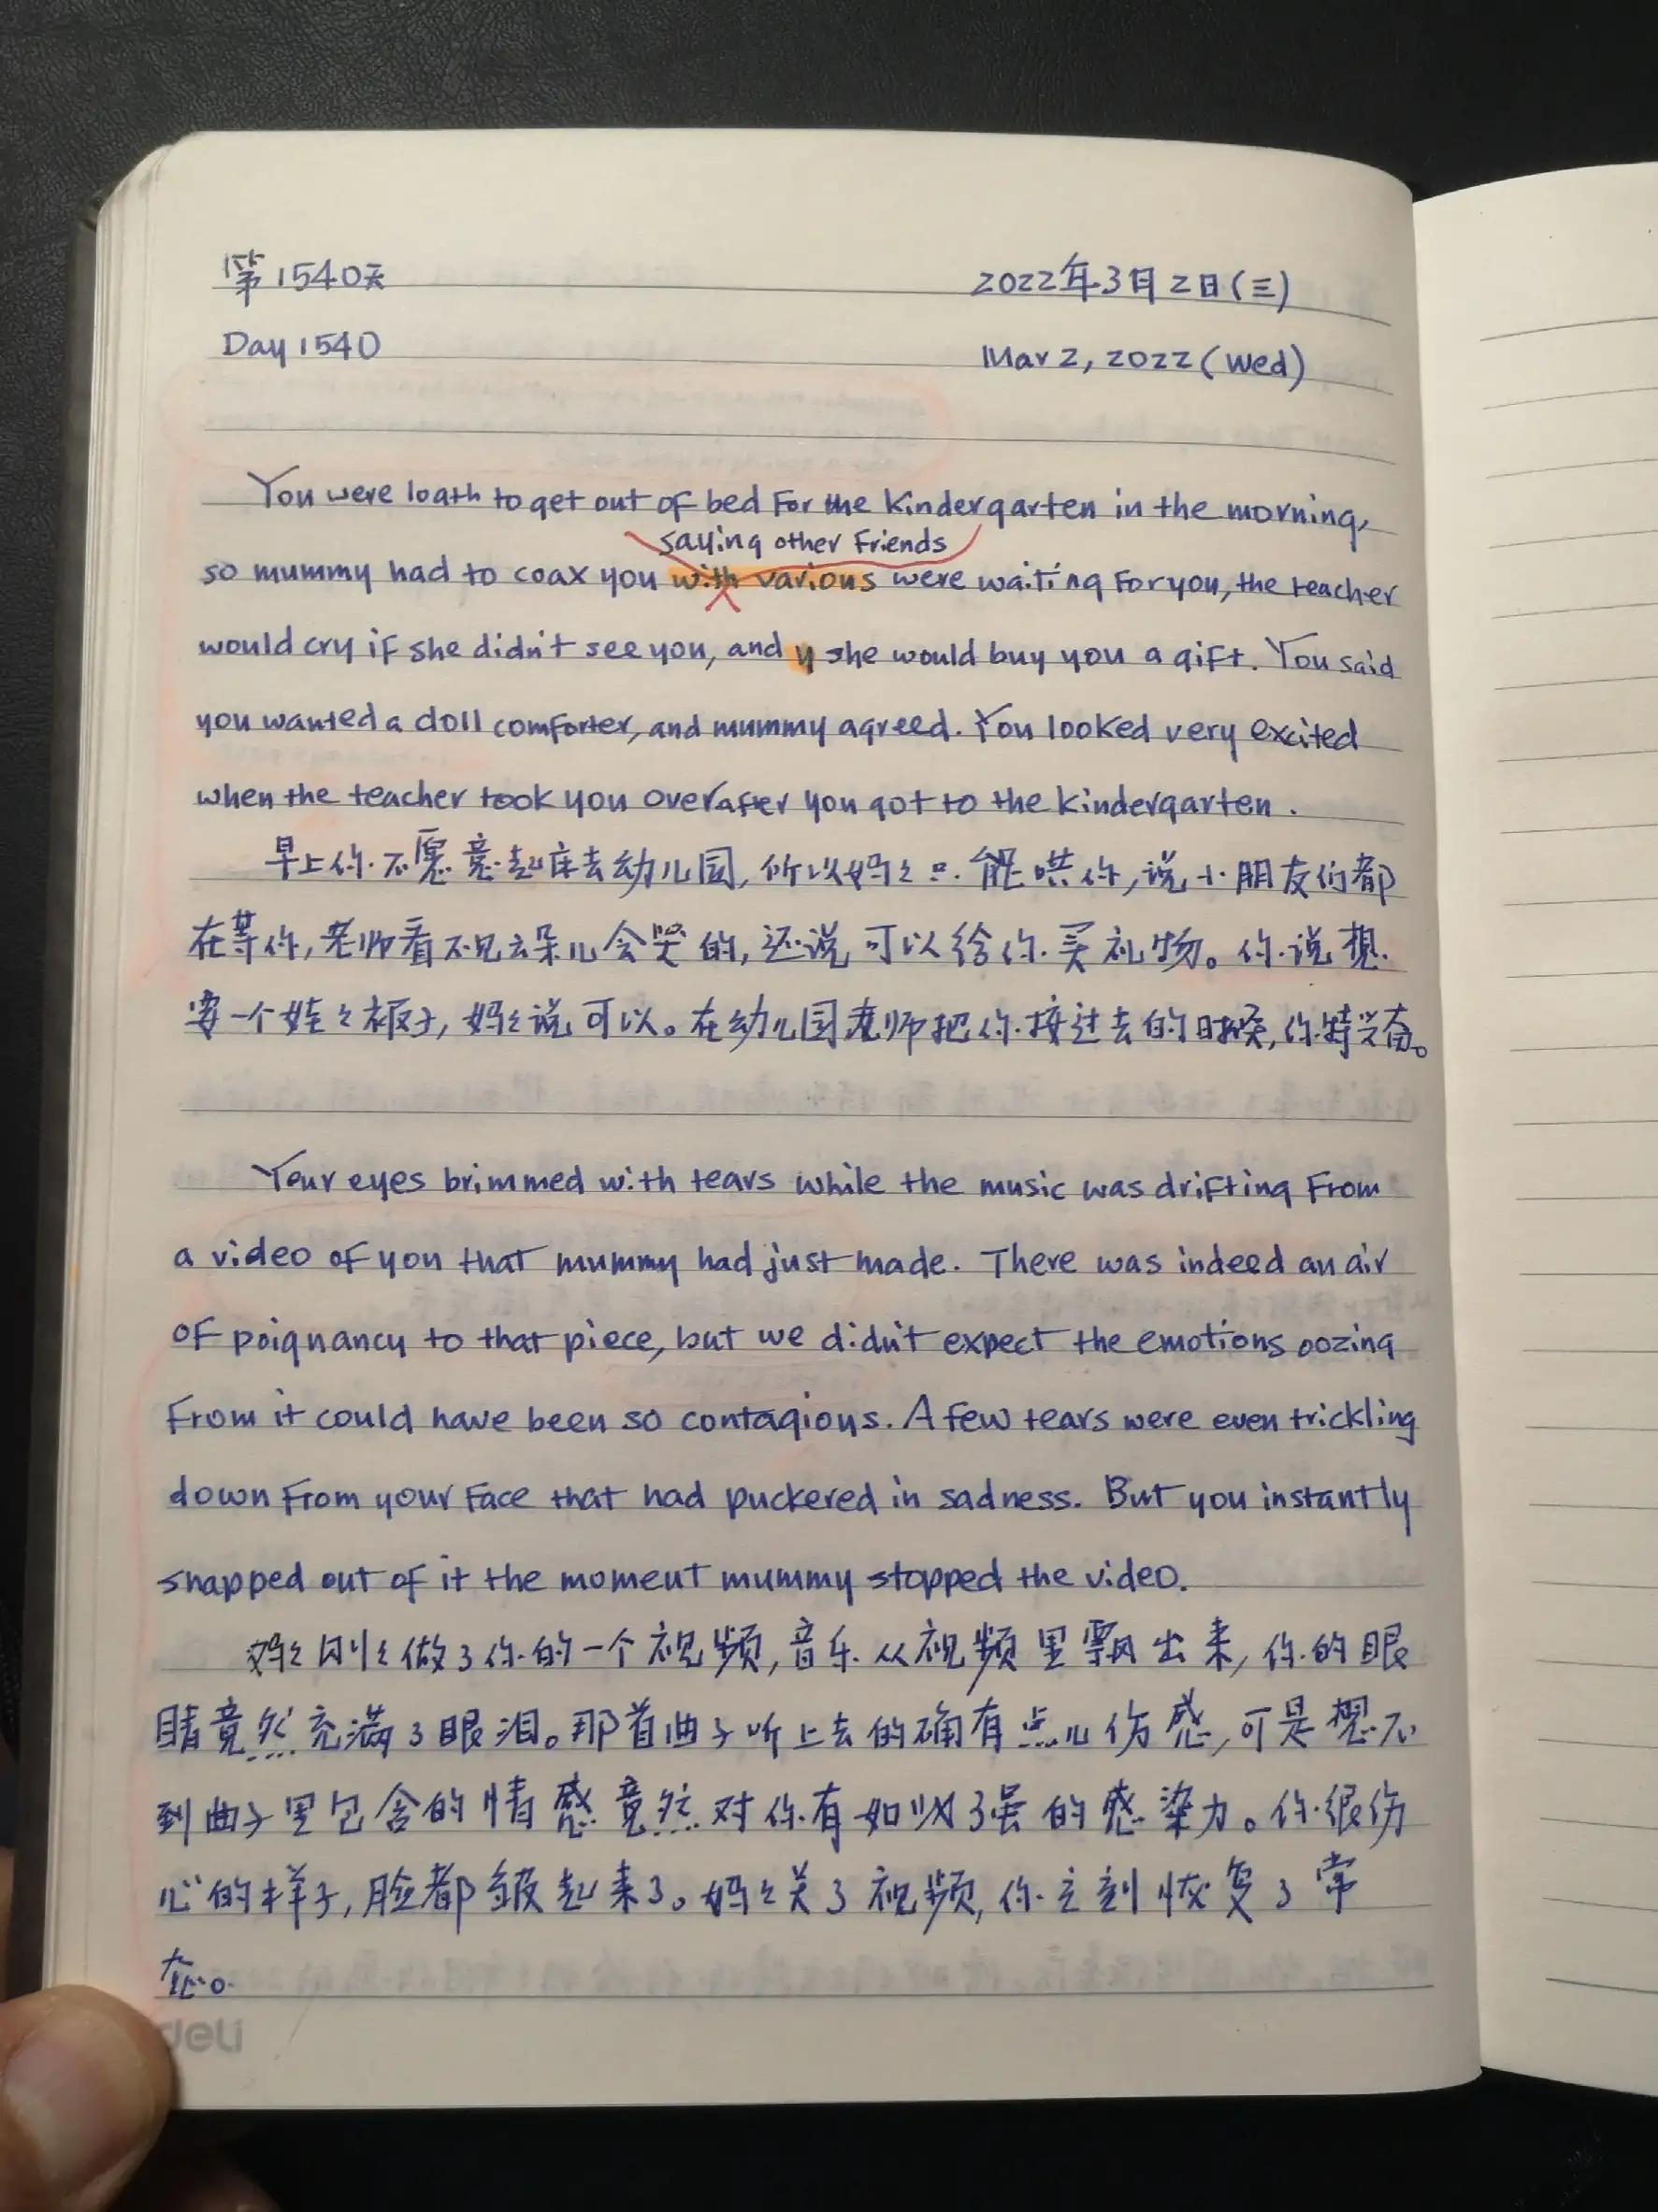 第1540天 2022年3月2日(三)
Day 1540 Mar 2, 2022 (Wed)
You were loath to get out of bed for the kindergarten in the morning,
saying other friends
so mummy had to coax you with various were waiting for you, the teacher
would cry if she didn't see you, and y she would buy you a gift. You said
you wanted a doll comforter, and mummy agreed. You looked very excited
when the teacher took you over after you got to the kindergarten.
早上你不愿意起床去幼儿园,所以妈々只能哄你,说小朋友们都
在等你,老师看不见云朵儿会哭的,还说可以给你买礼物。你说想
要一个娃々被子,妈々说可以。在幼儿园老师把你接过去的时候,你特兴奋。
Your eyes brimmed with tears while the music was drifting from
a video of you that mummy had just made. There was indeed an air
of poignancy to that piece, but we didn't expect the emotions oozing
from it could have been so contagious. A few tears were even trickling
down from your face that had puckered in sadness. But you instantly
snapped out of it the moment mummy stopped the video.
妈々刚々做了你的一个视频,音乐从视频里飘出来,你的眼
睛竟然充满了眼泪。那首曲子听上去的确有点儿伤感,可是想不
到曲子里包含的情感竟然对你有如此强的感染力。你很伤
心的样子,脸都皱起来了。妈々关了视频,你立刻恢复了常
态。
deli